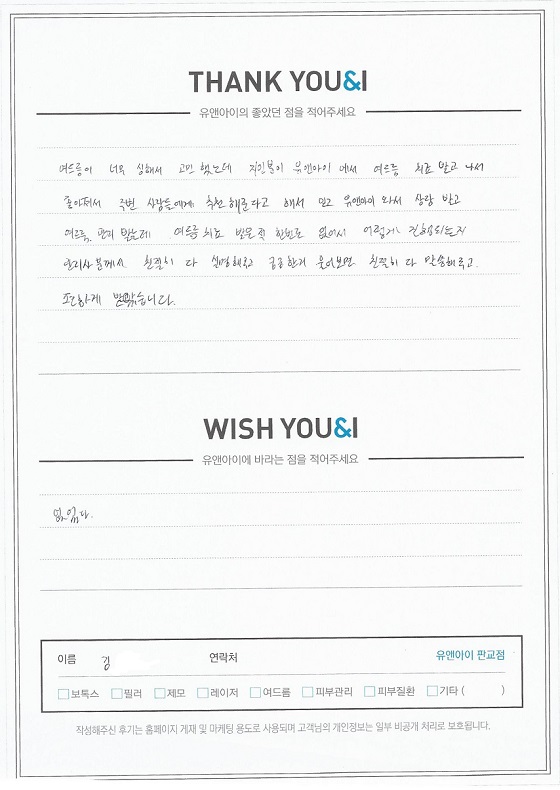 THANK YOU&I
유앤아이의 좋았던 점을 적어주세요
여드름이 너무 심해서 고민 했는데 지인분이 유앤아이 에서 여드름 치료 받고 나서
좋아져서 주변 사람들에게 추천 해준다고 해서 믿고 유앤아이 와서 상담 받고
여드름 관리 받는데 여드름 치료 받은적 한번도 없어서 어떻게 진행되는지
관리사분께서 친절히 다 설명해주고 궁금한거 물어보면 친절히 다 말씀해주고.
편하게 받았습니다.
WISH YOU&I
유앤아이에 바라는 점을 적어주세요
없있다.
이름 김 연락처 유앤아이 판교점
보톡스 필러 제모 레이저 여드름 피부관리 피부질환 기타 ( )
작성해주신 후기는 홈페이지 게재 및 마케팅 용도로 사용되며 고객님의 개인정보는 일부 비공개 처리로 보호됩니다.